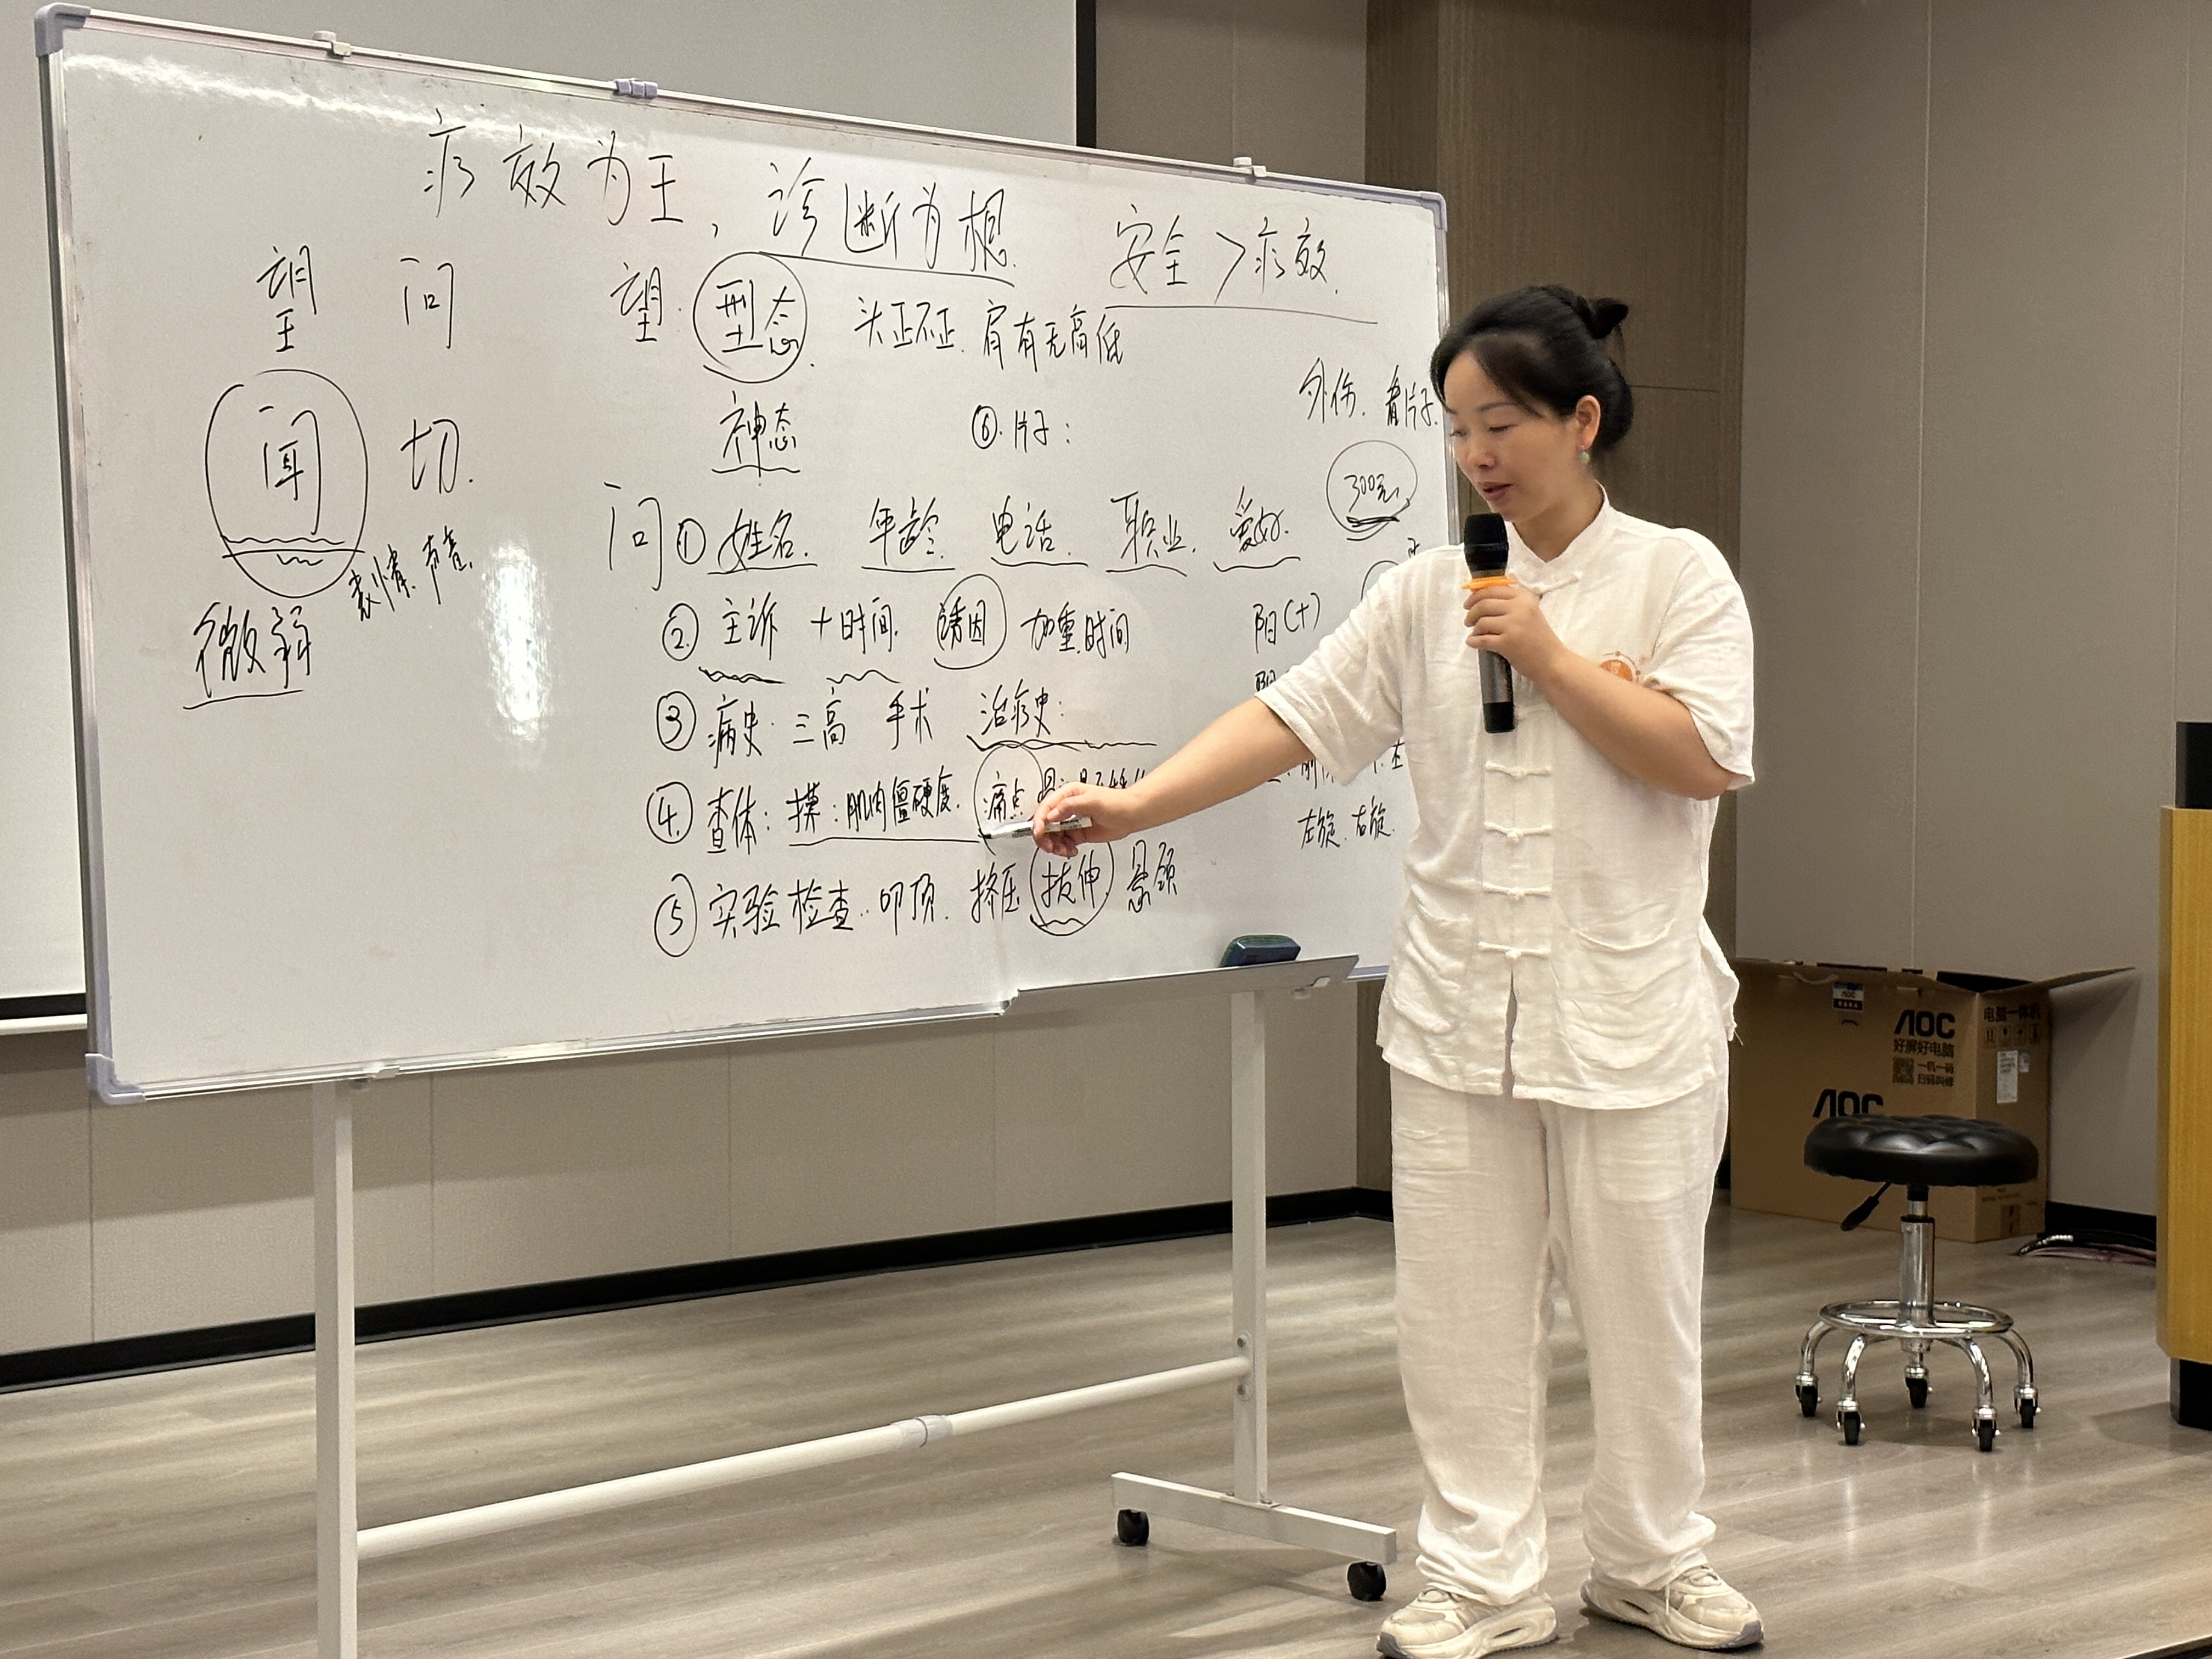 疗效为王，诊断为根.
安全>疗效.
望 问
闻 切.
表情. 声音.
微弱
望: 型态. 头正不正. 肩有无高低
神态
⑥. 片子:
外伤. 看片子.
300元.
问 ① 姓名. 年龄. 电话. 职业. 爱好.
② 主诉 +时间. 诱因 加重时间
③ 病史. 三高 手术 治疗史:
④ 查体: 摸: 肌肉僵硬度. 痛点
⑤ 实验检查.. 叩顶. 挤压 拔伸 悬颈
阳(+)
左旋. 右旋.
AOC
好屏好电脑
一机一码
扫码叫修
电脑一体机
AOC
AOC